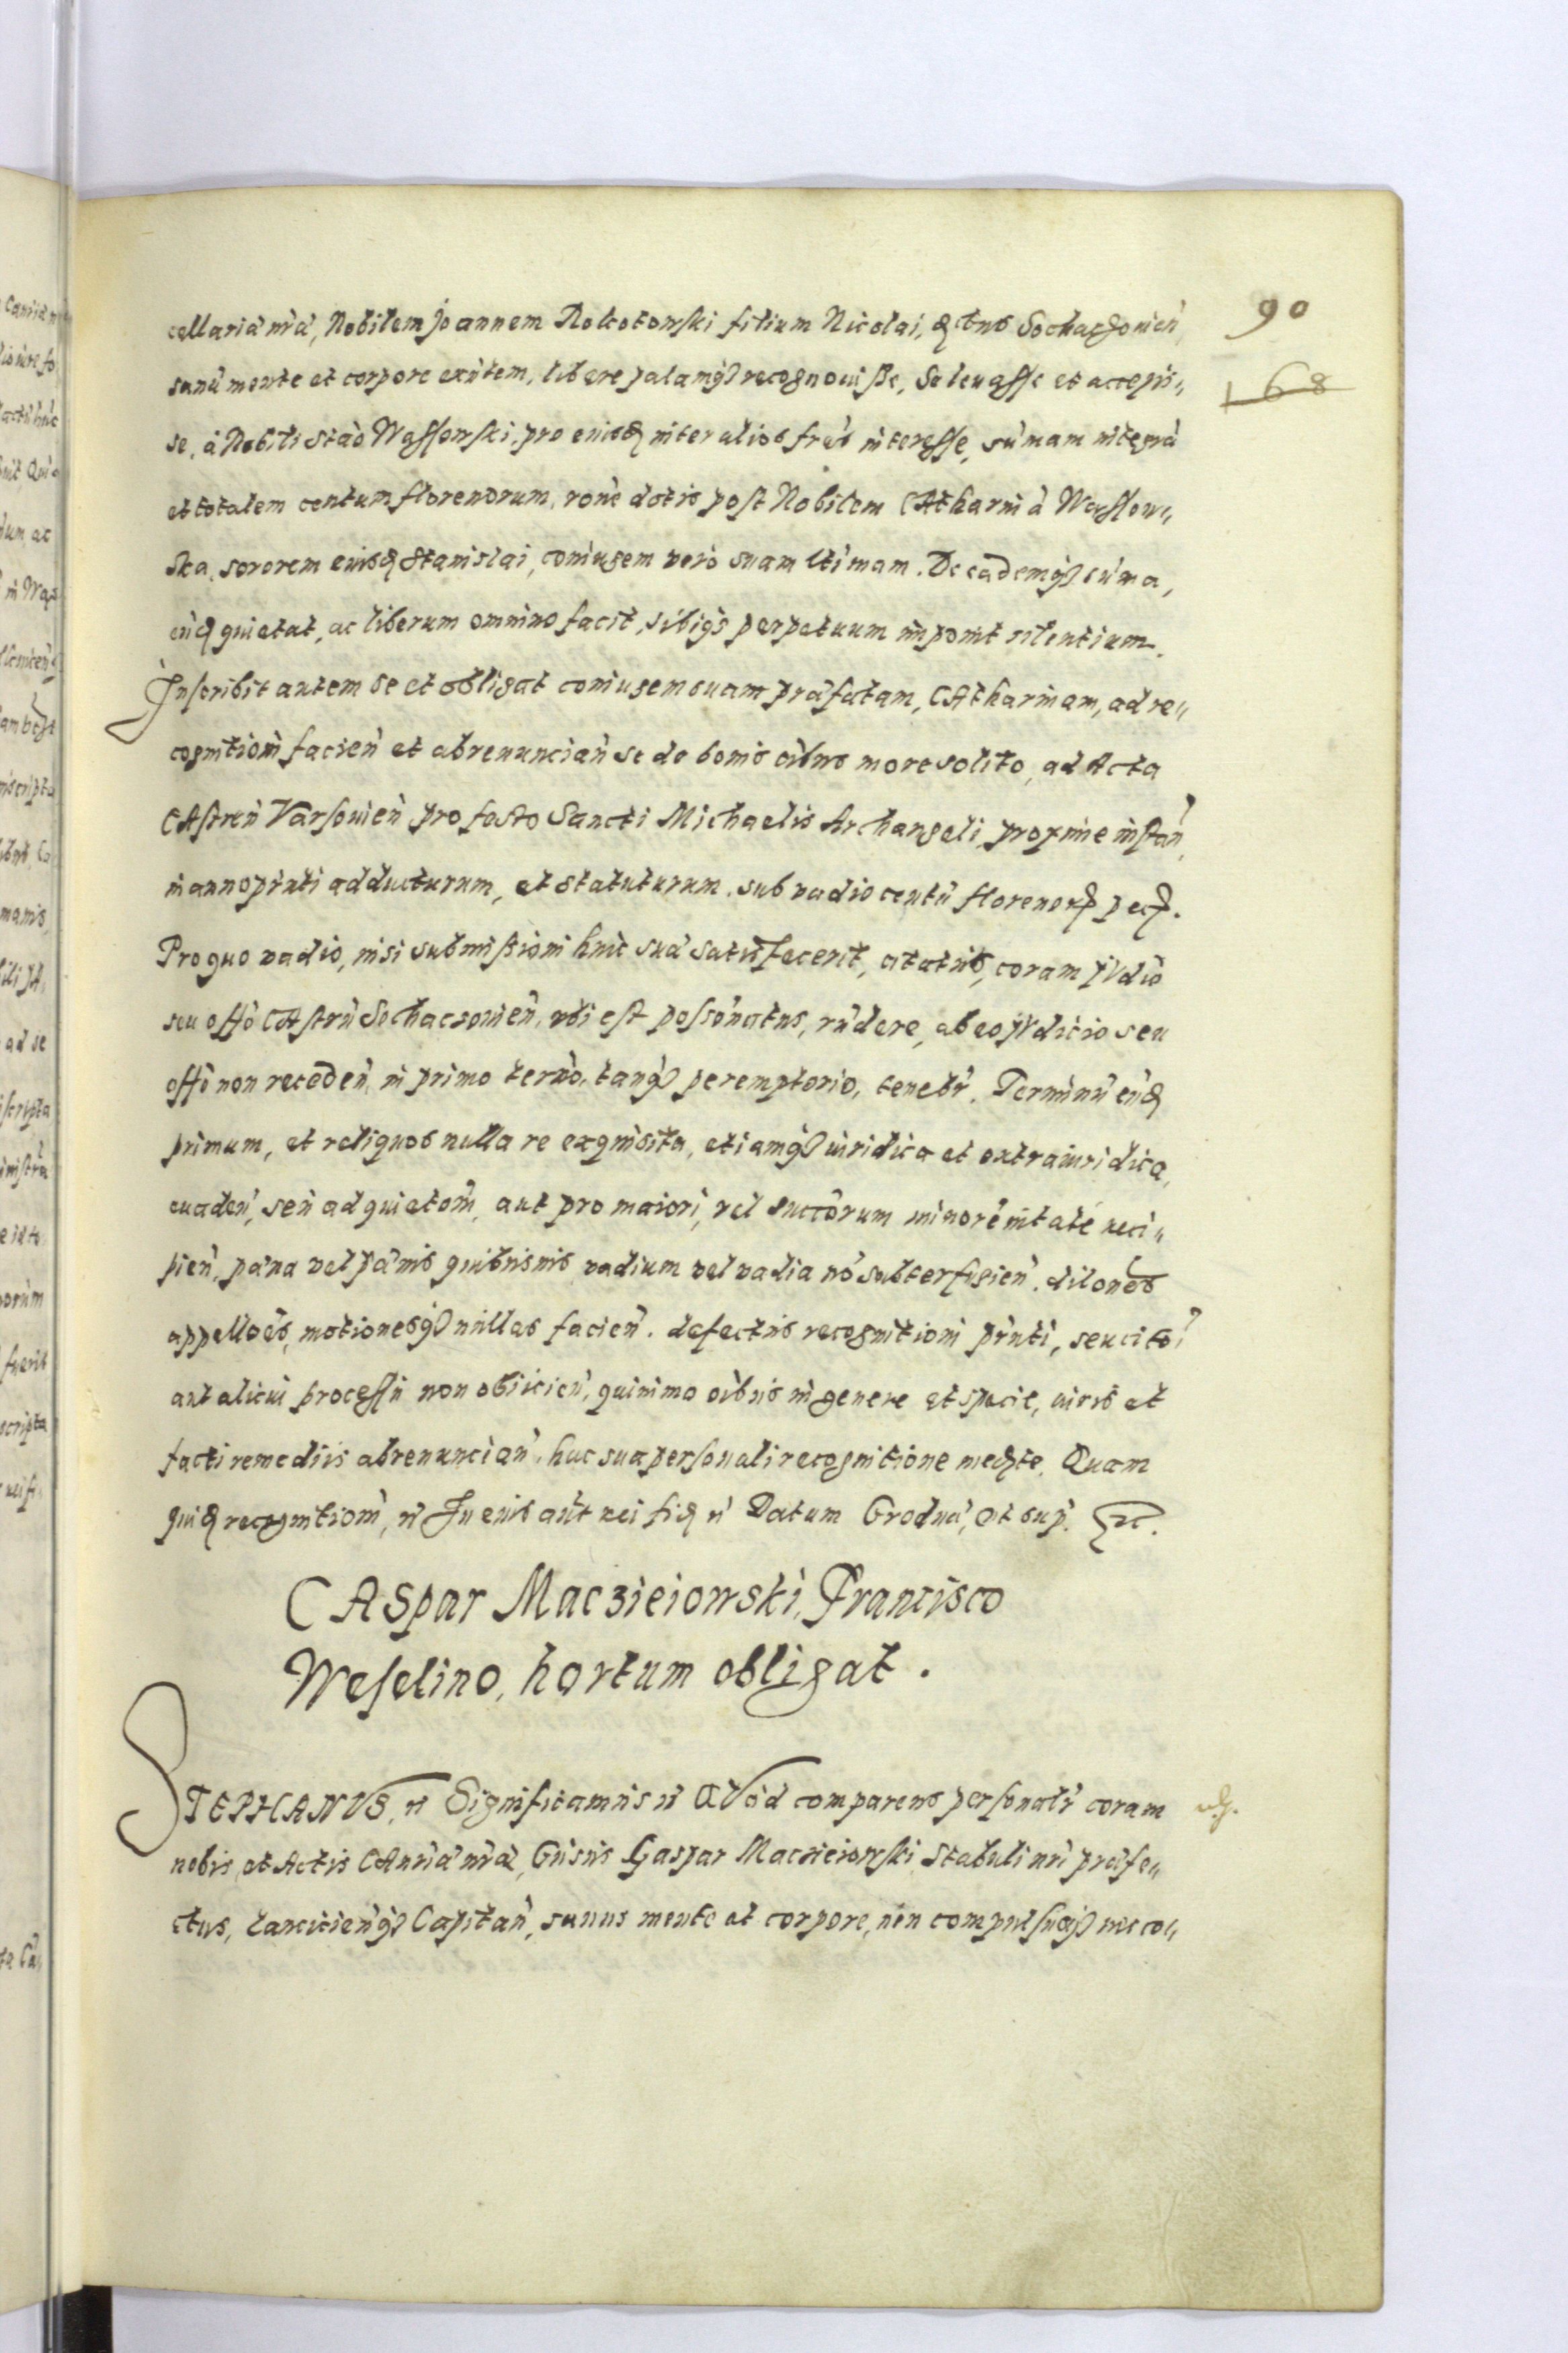 90
168
cellaria nrã, Nobilem Joannem Rokotowski filium Nicolai, Sochaczouieñ
sanũ mente et corpore exñtem, libere palamq recognouisse, Se leuasse et accepis„
se, à Nobili Stão Wąssowski, pro eiusd inter alios frẽs interesse, sũmam integrã
et totalem centum florenorum, rõne dotis post Nobilem CAtharinã Wąssow„
ska, sororem eiusd Stanislai, coniugem verò suam ltimam. De eademq sũma,
eñd quietat, ac liberum omnino facit, sibiq perpetuum imponit silentium.
Inscribit autem se et obligat coniugem suam præfatam, CAtharinam, ad re„
cognitioñ facieñ et abrenuncianñ se de bonis oĩbus more solito, ad Acta
CAstreñ Varsouieñ pro festo Sancti Michaelis Archangeli, proxime instañ,
in anno pñti adducturum, et statuturum. sub vadio centũ florenor pec.
Pro quo vadio, nisi submissioni huic suæ satisfecerit, citatus, coram iVdio
seu offõ CAstrñ Sochaczouieñ, vbi est possõnatus, rñdere, ab eo iVdicio seu
offõ non recedeñ, in primo termõ, tanq peremptorio, tenebr. Terminũ eñd
primum, et reliquos nulla re exquisita, etiamq iuridica et extraiuridica,
euadeñ, seu ad quietoñ, aut pro maiori, vel succõrum minorẽnitatẽ reci„
pieñ, pæna vel pænis quibusuis vadium vel vadia nõ subterfugieñ. dilones
appellões, motionesq nullas facieñ. defectus recognitioni pñti, seu cito
aut alicui processui non obiicieñ, quinimo oĩbus in genere et specie, iuris et
facti remediis abrenuncianñ, hac sua personali recognitione mediãte. Quam
quid recognitioñ, In cuius aũt rei fid Datum Grodnæ, vt sup.
CAspar Maczieiowski, Francisco
Weselino, hortum obligat.
STEPHANVS, Significamus QVòd comparens personalr coram
nobis, et Actis CAnriæ nræ, Gñsus Gaspar Macieiowski Stabuli nri præfe„
ctus, Lanciciẽnq Capitañ, sanus mente et corpore, non compulsusq nec co„